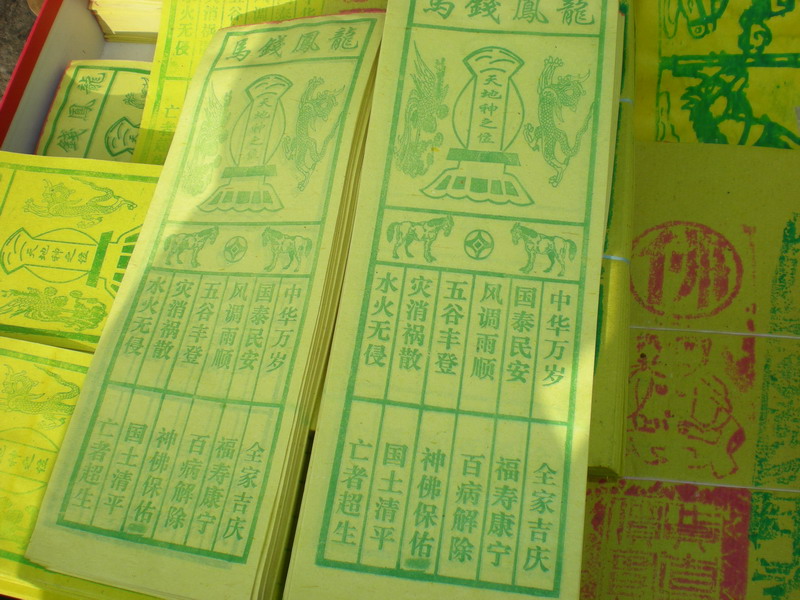 龍鳳錢
水火无侵
亡
天地神之位
龍鳳錢馬
天地神之位
中华万岁
国泰民安
风调雨顺
五谷丰登
灾消祸散
水火无侵
全家吉庆
福寿康宁
百病解除
神佛保佑
国土清平
亡者超生
龍鳳錢馬
天地神之位
中华万岁
国泰民安
风调雨顺
五谷丰登
灾消祸散
水火无侵
全家吉庆
福寿康宁
百病解除
神佛保佑
国土清平
亡者超生